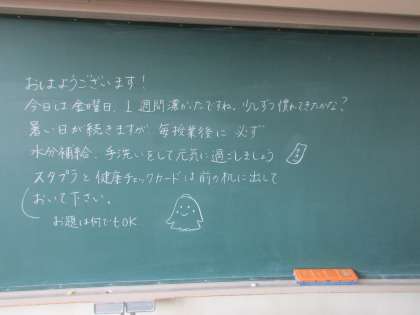 おはようございます!
今日は金曜日、1週間濃かったですね。少しずつ慣れてきたかな?
暑い日が続きますが、毎授業後に必ず
水分補給、手洗いをして元気に過ごしましょう
スタプラと健康チェックカードは前の机に出して
おいて下さい。
お題は何でもOK